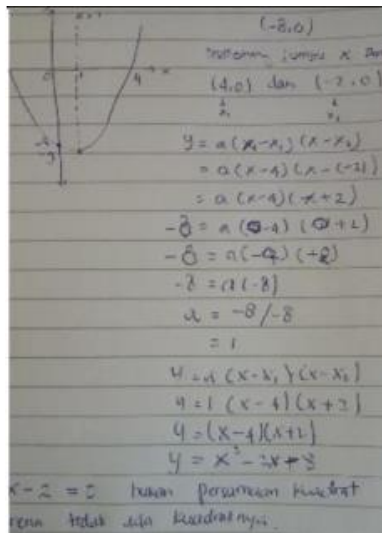 (-8,0)
x
0 1 4 x
(4,0) dan (-2,0)
x₁ x₂
y = a(x-x₁)(x-x₂)
= a(x-4)(x-(-2))
= a(x-4)(x+2)
-8 = a(0-4)(0+2)
-8 = a(-4)(+2)
-8 = a(-8)
a = -8/-8
= 1
y = a(x-x₁)(x-x₂)
y = 1(x-4)(x+2)
y = (x-4)(x+2)
y = x² - 2x - 8
x-2 = 0 bukan persamaan kuadrat
tidak ada kuadratnya.